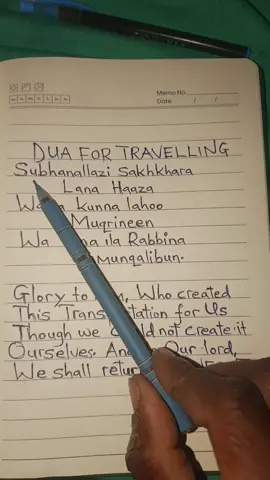 Memo No.
Date / /
DUA FOR TRAVELLING
Subhanallazi Sakhkhara
Lana Haaza
kunna lahoo
Muqrineen
Wa ila Rabbina
munqalibun.
Glory to Who created
This for Us
Though we not create it
Ourselves. Our lord,
We shall